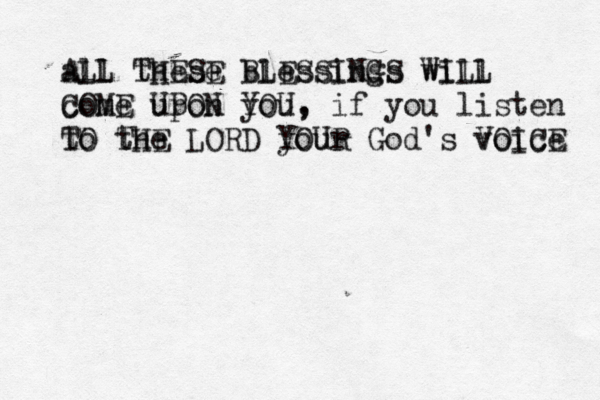 ALL THESE BLESSINGS WILL
COME UPON YOU, if you listen
TO THE LORD YOUR God's VOICE